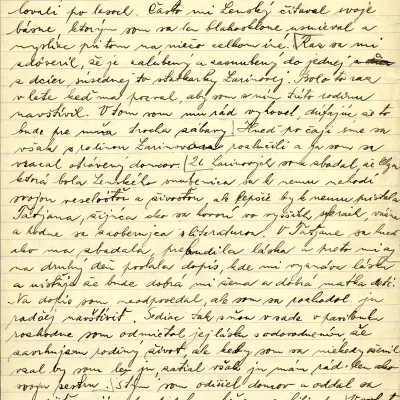 lovali po lesoch. Často mi Lenský čítaval svoje
básne, ktorým som sa len blahosklone usmieval a
myslieval pri tom na niečo celkom iné. Raz sa mi
zdôveril, že je zaľúbený a zasnúbený do jednej
z dcier susednej to statkárky Larinovej. Bolo to raz
v lete keď ma pozval, aby som s ním túto rodinu
navštívil. V tom som mu rád vyhovel, dúfajúc že to
bude pre mňa trocha zábavy. Hneď po čaji sme sa
však s rodinou Larinovou rozlúčili a ja som sa
vracal otrávený domov. U Larinových som zbadal, že Oľga
ktorá bola Lenského snúbenica sa k nemu nehodí
svojou veselosťou a živosťou, ale lepšie by k nemu pristala
Tatjana, žijúca ako sa hovorí vo vyšších sférach, vážna
a hodne sa zaoberajúca literatúrou. V Tatjane sa hneď
ako ma zbadala prebudila láska a preto mi aj
na druhý deň poslala dopis, kde mi vyznáva lásku
a uisťuje že bude dobrá mi žena a dobrá matka detí.
Na dopis som neodpovedal, ale som sa rozhodol ju
radšej navštíviť. Sediac tak s ňou v sade v
rozhodne som odmietol jej lásku s odôvodnením že
zavrhujem rodinný život, ale keby som sa niekedy oženil
vzal by som len ju, zatiaľ však ju mám rád len ako
svoju sestru. S tým som odišiel domov a oddal sa